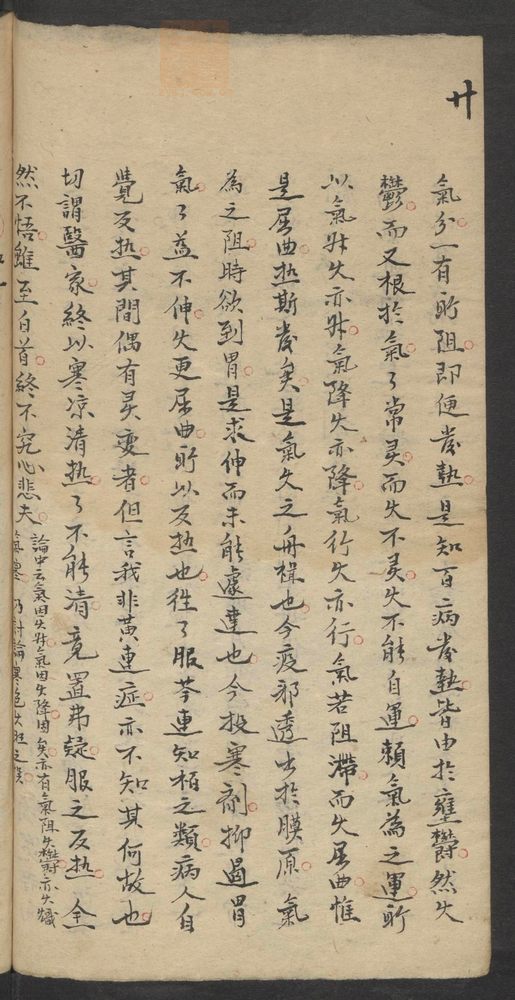 廿
氣分一有所阻即便發熱是知百病發熱皆由於壅欝然火
欝而又根於氣々常灵而火不灵火不能自運賴氣為之運所
以氣升火亦升氣降火亦降氣行火亦行氣若阻滯而火屈曲惟
是屈曲热斯發矣是氣火之舟楫也今疫邪透出於膜原氣
為之阻時欲到胃是求伸而未能遽達也今投寒劑抑遏胃
氣々益不伸火更屈曲所以反热也往々服芩連知柏之類病人自
覺反热其間偶有灵变者但言我非黃連症亦不知其何故也
切謂醫家終以寒凉清热々不能清竟置弗疑服之反热全
然不悟雖至白首終不究心悲夫
論中云氣因火升氣因火降因矣亦有氣阻火欝亦火熾